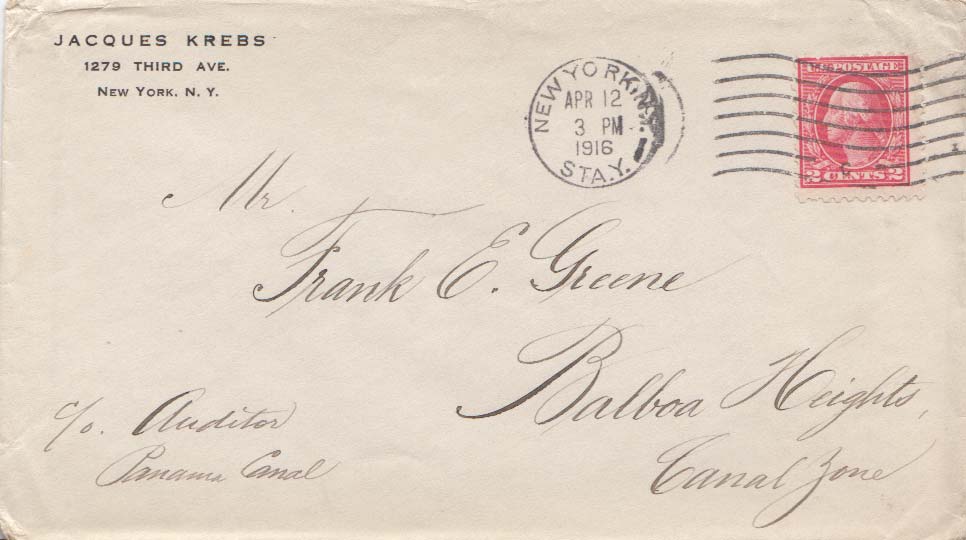 JACQUES KREBS
1279 THIRD AVE.
NEW YORK, N. Y.
NEW YORK, N.Y.
APR 12
3 PM
1916
STA.Y.
POSTAGE
2 CENTS 2
Mr.
Frank E. Greene
Balboa Heights,
Canal Zone
c/o. Auditor
Panama Canal